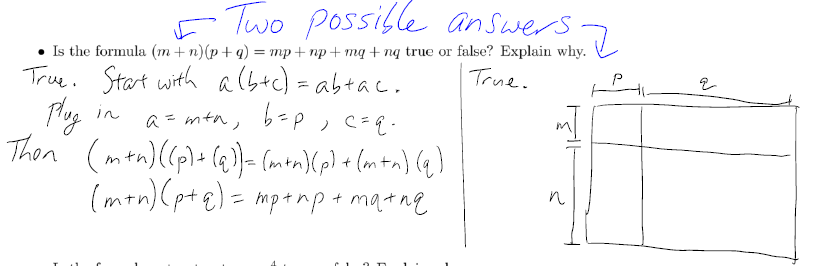 Two possible answers
• Is the formula (m + n)(p + q) = mp + np + mq + nq true or false? Explain why.
True. Start with a(b+c) = ab+ac.
Plug in a = m+n, b=p, c=q.
Then (m+n)((p)+(q)) = (m+n)(p) + (m+n)(q)
(m+n)(p+q) = mp+np+mq+nq
True.
p q
m
n